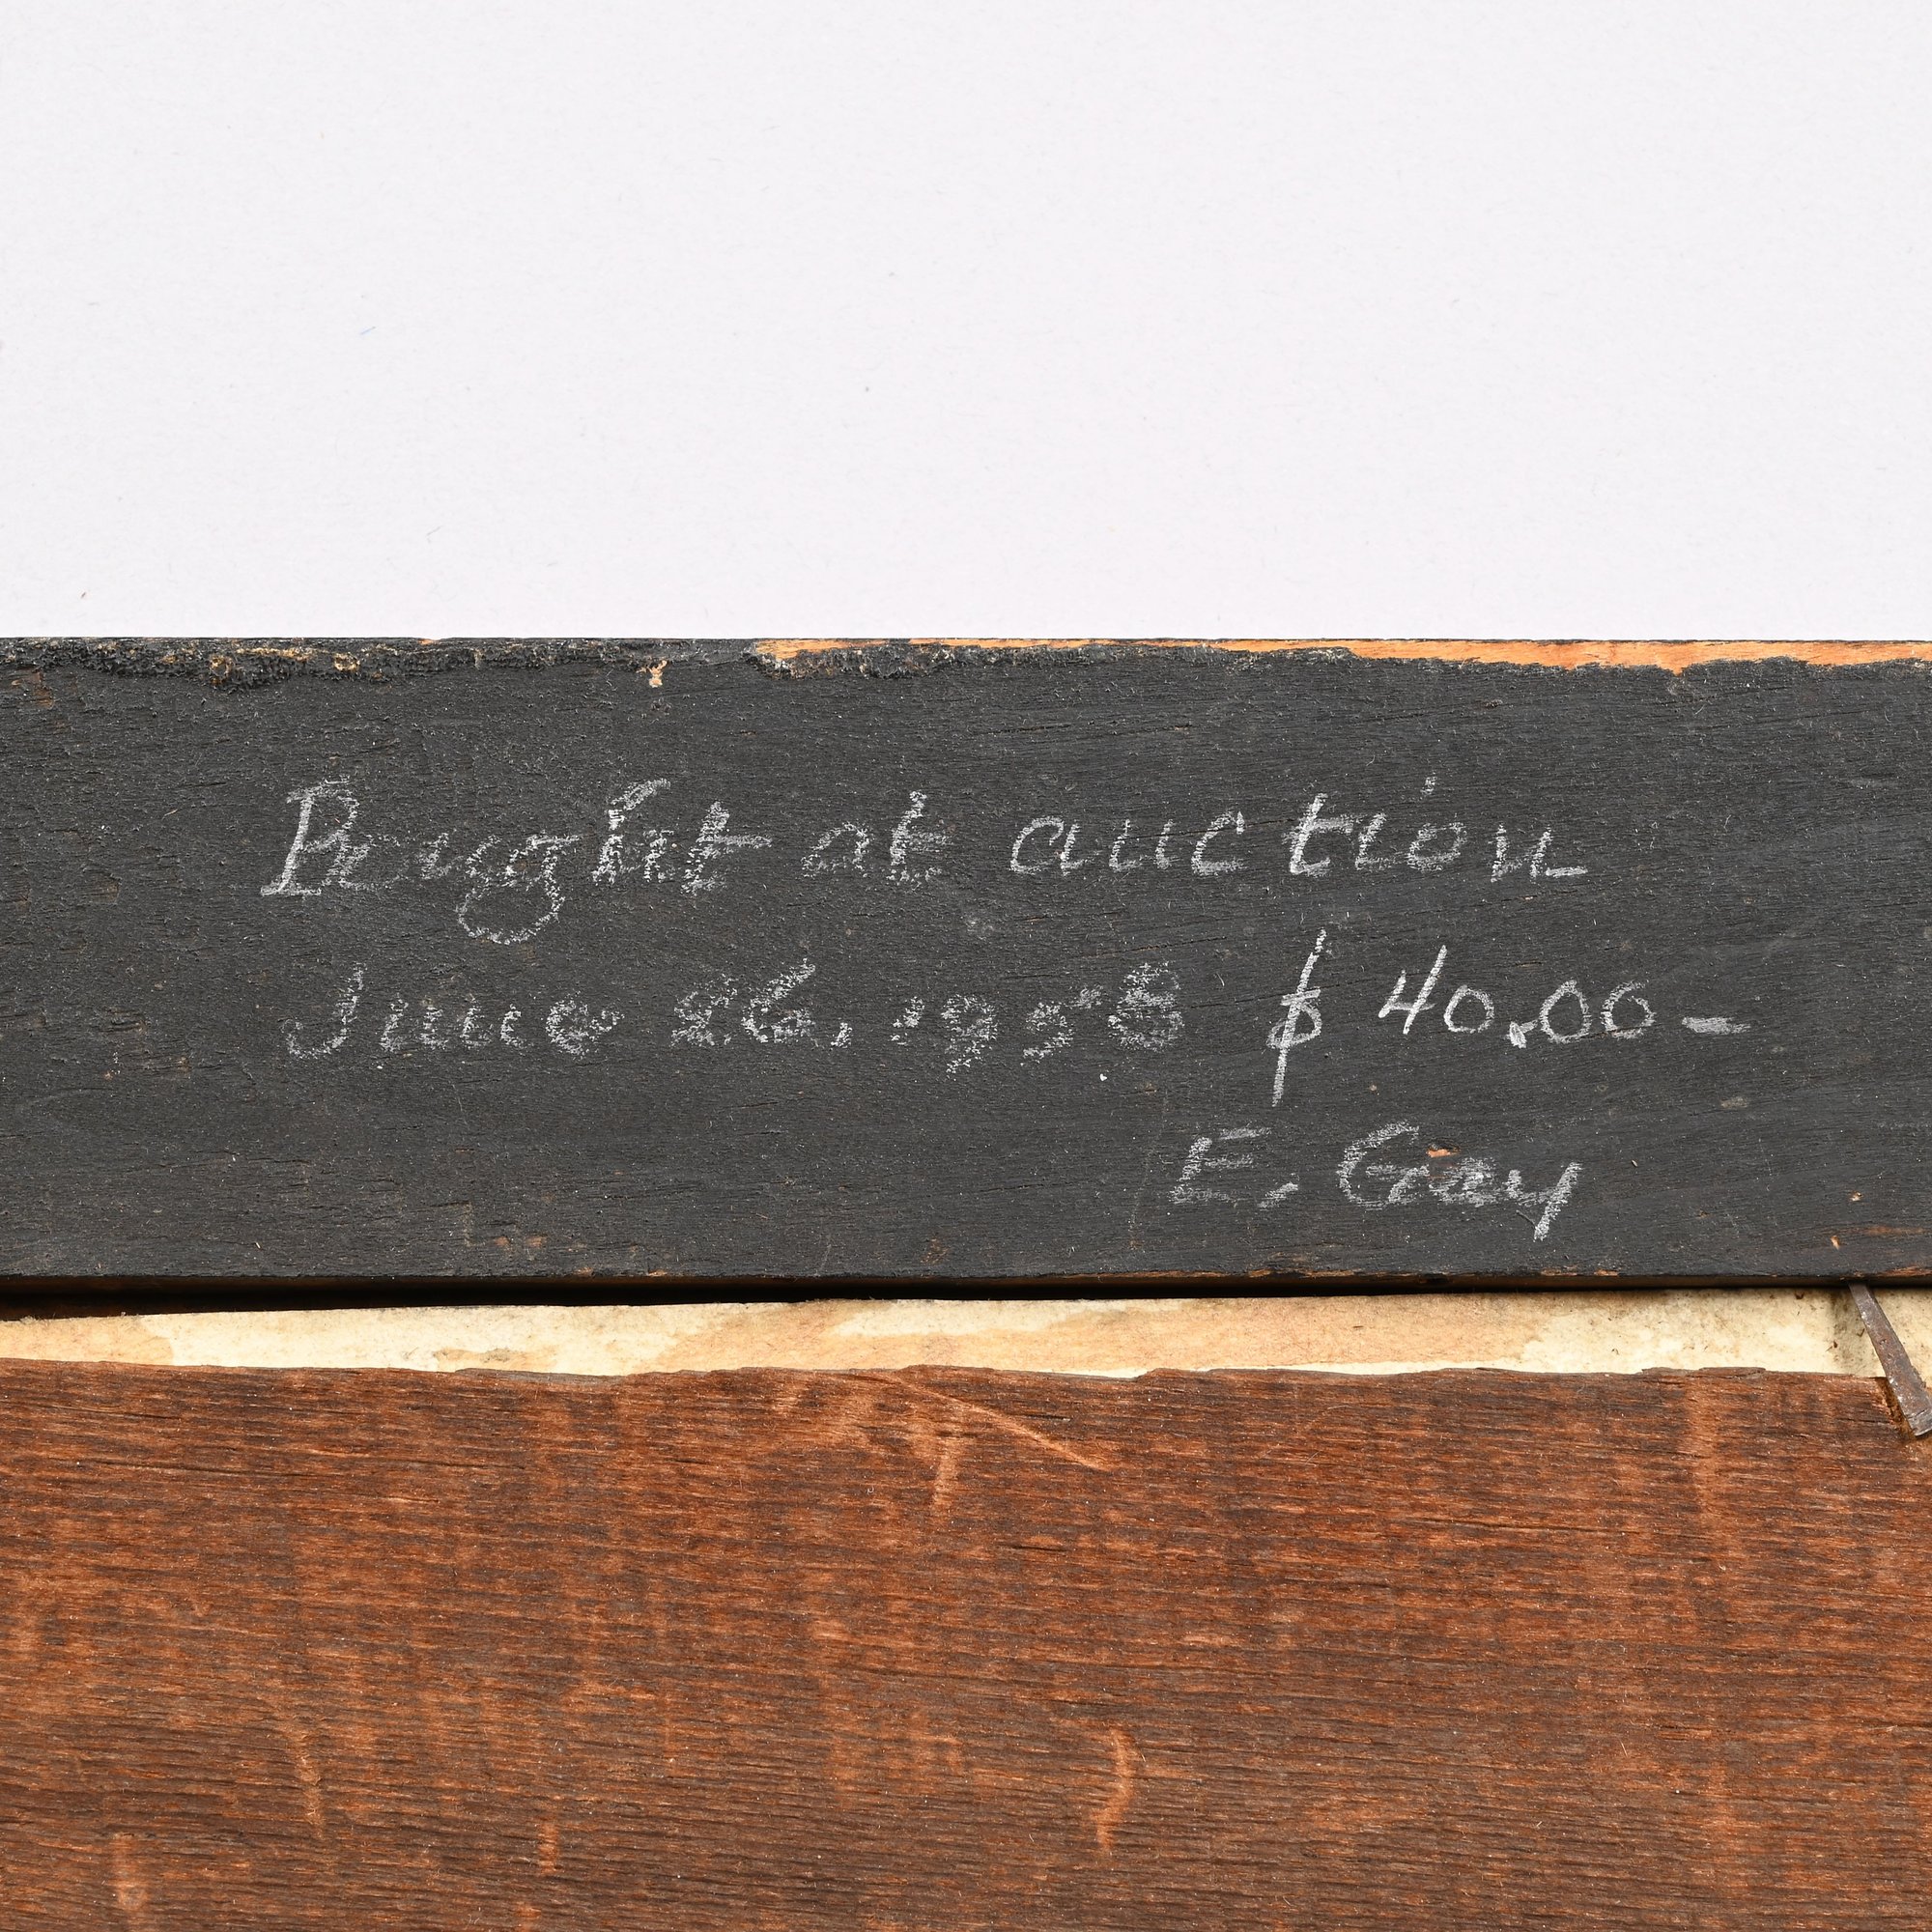 Bought at auction
June 26, 1958 $ 40.00-
E. Gay